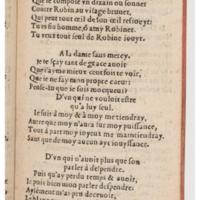 Que je compose vn dizain ou sonnet
Contre Robin au visage brunet,
Qui peut tout œil de son œil resiouyr:
Tu es son homme, & amy Robinet.
Tu veux tout seul de Robine iouyr.
A la dame sans mercy.
Je te sçay tant de grace auoir
Que i'ayme mieux cent fois te voir,
Que je ne fay mon propre cœur:
Pense-tu que je sois mocqueur?
D'vn qui ne vouloit estre
qu'à luy seul.
Je suis à moy & à moy me tiendray,
Autre que moy n'aura sur moy puissance,
Tout à part moy ioyeux me maintiendray
Sans que de moy aucun ayt iouyssance.
D'vn qui n'auoit plus que son
parler à despendre.
Puis qu'ay perdu temps & auoir,
Je puis bien mon parler despendre.